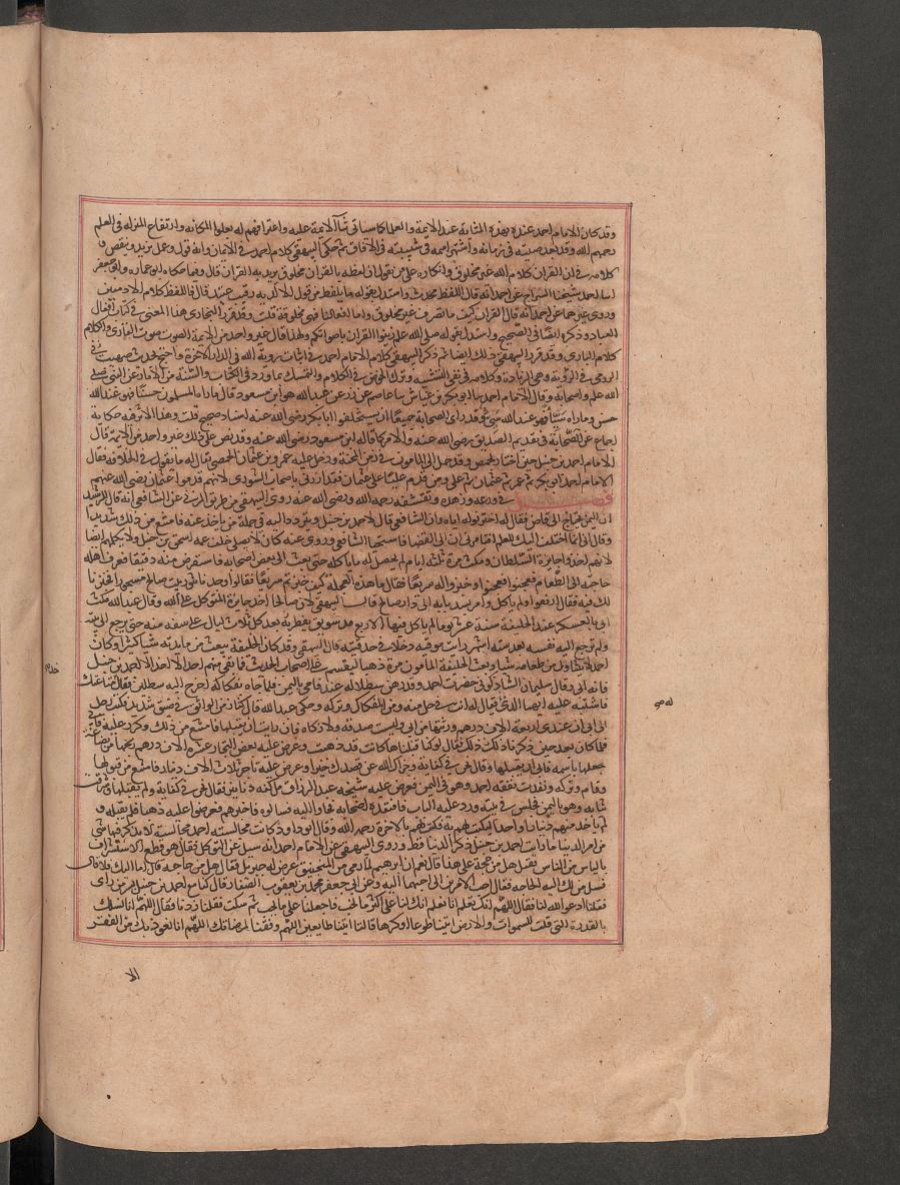 وقد كان الامام احمد عنده بهذه المثابة عند الايمة والعلما كما سياتي ثنآ الايمة عليه واعترافهم له بعلو المكانه وارتفاع المنزله في العلم
رحمهم الله وقد بعد صيته في زمانه واشتهر اسمه في شبيبته في الافاق ثم حكى البيهقي كلام احمد في الايمان وانه قول وعمل يزيد وينقص و
كلامه في ان القران كلام الله غير مخلوق وانكاره على من يقول ان لفظه بالقران مخلوق يريد به القران قال وفيما حكاه ابو عماره وابو جعفر
احمد شيخنا السراج عن احمد انه قال اللفظ محدث واستدل بقوله ما يلفظ من قول الا لديه رقيب عتيد قال فاللفظ كلام الادميين
وروى غيرهما عن احمد انه قال القران كيف ما تصرف غير مخلوق واما افعالنا فهي مخلوقة قلت وقد قرر البخاري هذا المعنى في كتاب افعال
العباد وذكره ايضا في الصحيح واستدل بقوله صلى الله عليه زينوا القران باصواتكم ولهذا قال غير واحد من الايمة الصوت صوت القاري والكلام
كلام الباري وقد قرر البيهقي ذلك ايضا ثم ذكر البيهقي كلام الامام احمد في اثبات روية الله في الدار الاخرة واحتج بحديث صهيب في
الرومي في الروية وهي الزيادة وكلامه في نفي التشبيه وترك الخوض في الكلام والتمسك بما ورد في الكتاب والسنة من الاثار عن النبي صلى
الله عليه واصحابه وقال الامام احمد سا ابو بكر بن عياش سا عاصم عن زر عن عبد الله هو ابن مسعود قال ما راه المسلمون حسنا فهو عند الله
حسن وما راوه سيئا فهو عند الله سيئ وقد راى الصحابة جميعا ان يستخلفوا ابا بكر رضي الله عنه اسناد صحيح قلت وهذا الاثر فيه حكاية
اجماع عن الصحابة في تقديم الصديق رضي الله عنه والامر كما قاله ابن مسعود رضي الله عنه وقد نص على ذلك غير واحد من الايمة قال
الامام احمد بن حنبل حين اجتاز بحمص وقد حمل الى المامون في زمن المحنة ودخل عليه عمرو بن عثمان الحمصي فقال له ما تقول في الخلافه فقال
الامام احمد ابو بكر ثم عمر ثم عثمان ثم علي ومن قدم عليا على عثمان فقد ازرى باصحاب الشورى لانهم قدموا عثمان رضي الله عنهم
فصل في ورعه وزهده وتقشفه رحمه الله ورضي الله عنه روى البيهقي من طريق المزني عن الشافعي انه قال للرشيد
ان اليمن محتاج الى قاض فقال له اختر نوله اياه وان الشافعي قال لاحمد بن حنبل ويتردد اليه في جملة من ياخذ عنه فامتنع من ذلك شديدا
وقال اني انما اختلف اليك للعلم افتامرني ان الى القضا فاستحيا الشافعي وروى عنه كان لا يصلي خلف عمه اسحق بن حنبل ولا يكلمهم ايضا
لانهم اخذوا جايزة السلطان ومكث مرة ثلثة ايام لم يحصل له ما ياكله حتى بعث الى بعض اصحابه فاستقرض منه دقيقا فعرف اهله
حاجته الى الطعام فعجنوا العجين وخبزوا له سريعا فقال ما هذه العجلة كيف خبزتم سريعا فقالوا وجدنا تنور بيت صالح مسجورا فخبزنا
لك فيه فقال ارفعوا ولم ياكل وامر بسد بابه الى دار صالح قال البيهقي لان صالحا اخذ جايزة المتوكل على الله وقال عبد الله مكث
ابي بالعسكر عند الخليفة ستة عشر يوما لم ياكل فيها الا ربع مد سويق يفطر به بعد كل ثلاث ليال على سفه منه حتى يرجع الى بيته
ولم ترجع اليه نفسه بعد ستة اشهر رايت موقيه دخلا في حدقتيه قال البيهقي وقد كان الخليفة يبعث من مايدته شيا كثيرا وكان
احمد لا يتناول من طعامه شيا وبعث الخليفة المامون مرة ذهبا ليقسم على اصحاب الحديث فما بقي منهم احدا الا اخذ الا احمد بن حنبل
فانه ابى وقال سليمان الشاذكوني حضرت احمد وقد رهن سطلا له عند فامي باليمن فلما جاه بفكاكه اخرج اليه سطلين فقال خذ متاعك
فاشتبه عليه ايهما الذي له فقال له انت في حل منه ومن الفكاك وتركه وحكى عبد الله قال كنا في زمن الواثق في ضيق شديد فكتب رجل
الى ابي ان عندي اربعة الاف درهم ورثتها من ابي وليست صدقة ولا زكاه فان رايت ان تقبلها فامتنع من ذلك وكرر عليه فابى
فلما كان بعد حين ذكرنا ذلك فقال لو كنا قبلناها كانت قد ذهبت وعرض عليه بعض التجار عشره الاف درهم ربحها من بضاعة
جعلها باسمه فابى ان يقبلها وقال نحن في كفاية وجزاك الله عن قصدك خيرا وعرض عليه تاجر ثلاث الاف دينار فامتنع من قبولها
وقام وتركه ونفدت نفقة احمد وهو في اليمن فعرض عليه شيخه عبد الرزاق مل كفه دنانير فقال نحن في كفاية ولم يقبلها وسرقت
ثيابه وهو باليمن فجلس في بيته ورد عليه الباب ففقده اصحابه فجاوا اليه فسالوه فاخبرهم فعرضوا عليه ذهبا فلم يقبله و
لم ياخذ منهم دينارا واحدا ليكتب لهم به فكتب لهم بالاجرة رحمه الله وقال ابو داود كانت مجالسة احمد مجالسة الاخرة لا يذكر فيها شي
من امر الدنيا ما رايت احمد بن حنبل ذكر الدنيا قط وروى البيهقي عن الامام احمد انه سيل عن التوكل فقال هو قطع الاستشراف
بالياس من الناس فقيل هل من حجة على هذا قال نعم ان ابراهيم لما رمي من المنجنيق عرض له جبريل فقال هل من حاجة قال اما اليك فلا قال
فسل من لك اليه الحاجه فقال احب الامرين الى احبهما اليه وعن ابي جعفر محمد بن يعقوب الصفار قال كنا مع احمد بن حنبل بسر من راى
فقلنا ادعو الله لنا فقال اللهم انك تعلم انا نعلم انك لنا على اكثر ما نحب فاجعلنا على ما تحب ثم سكت فقلنا زدنا فقال اللهم انا نسالك
بالقدرة التي قلت للسموات والارض ايتيا طوعا او كرها قالتا اتينا طايعين اللهم وفقنا لمرضاتك اللهم انا نعوذ بك من الفقر
الا